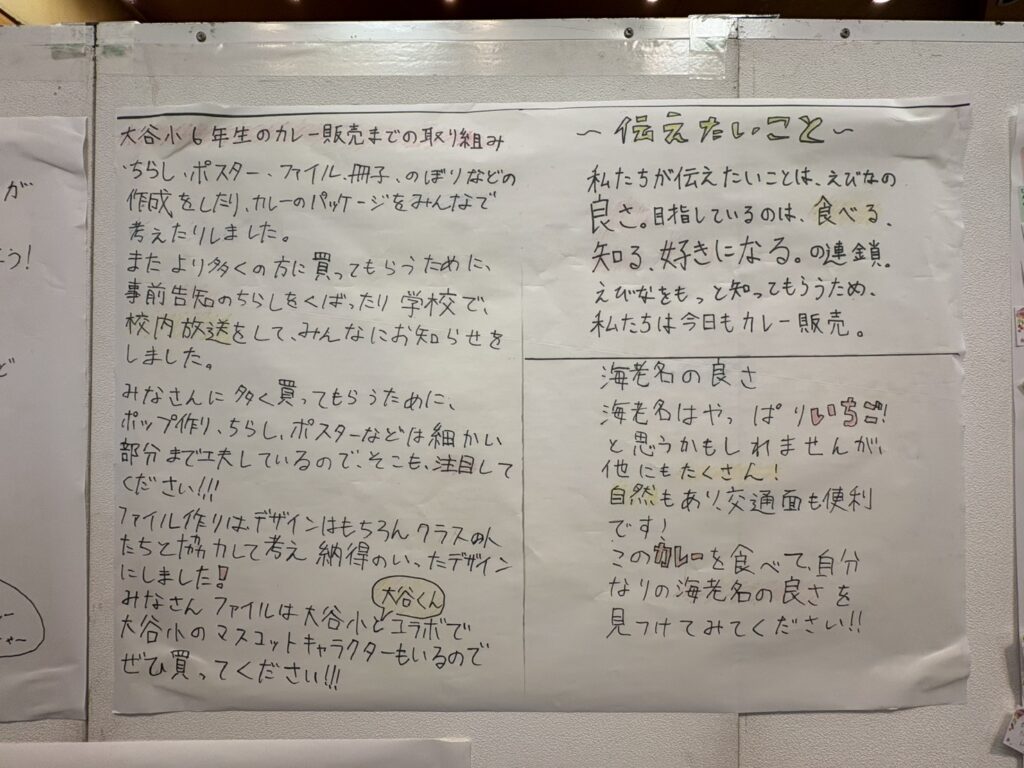 大谷小6年生のカレー販売までの取り組み
ちらし、ポスター、ファイル、冊子、のぼりなどの
作成をしたり、カレーのパッケージをみんなで
考えたりしました。
またより多くの方に買ってもらうために、
事前告知のちらしをくばったり学校で、
校内放送をして、みんなにお知らせを
しました。
みなさんに多く買ってもらうために、
ポップ作り、ちらし、ポスターなどは細かい
部分まで工夫しているので、そこも、注目して
ください!!!
ファイル作りは、デザインはもちろんクラスの人
たちと協力して考え納得のいったデザイン
にしました!
大谷くん
みなさんファイルは大谷小とコラボで
大谷小のマスコットキャラクターもいるので
ぜひ買ってください!!!
~伝えたいこと~
私たちが伝えたいことは、えびなの
良さ。目指しているのは、食べる、
知る、好きになる。の連鎖。
えびなをもっと知ってもらうため、
私たちは今日もカレー販売。
海老名の良さ
海老名はやっぱりいちご!
と思うかもしれませんが、
他にもたくさん!
自然もあり、交通面も便利
です!
このカレーを食べて、自分
なりの海老名の良さを
見つけてみてください!!
が
う!
ど